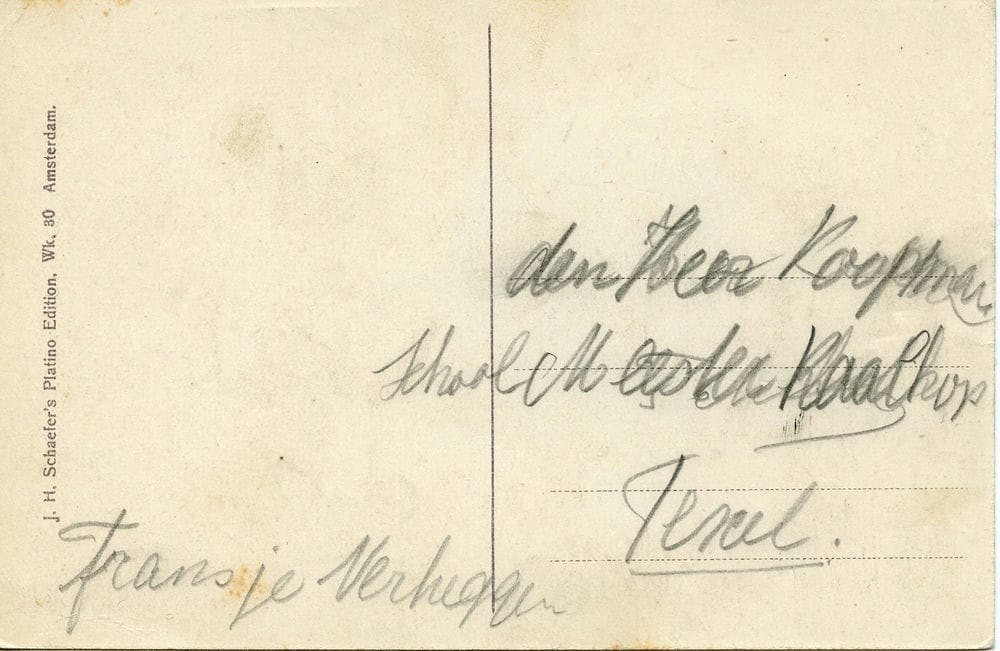 J. H. Schaefer's Platino Edition. Wk. 30 Amsterdam.
den Heer Koopman
School Meester Kaalkop
Texel.
Fransje Verheggen